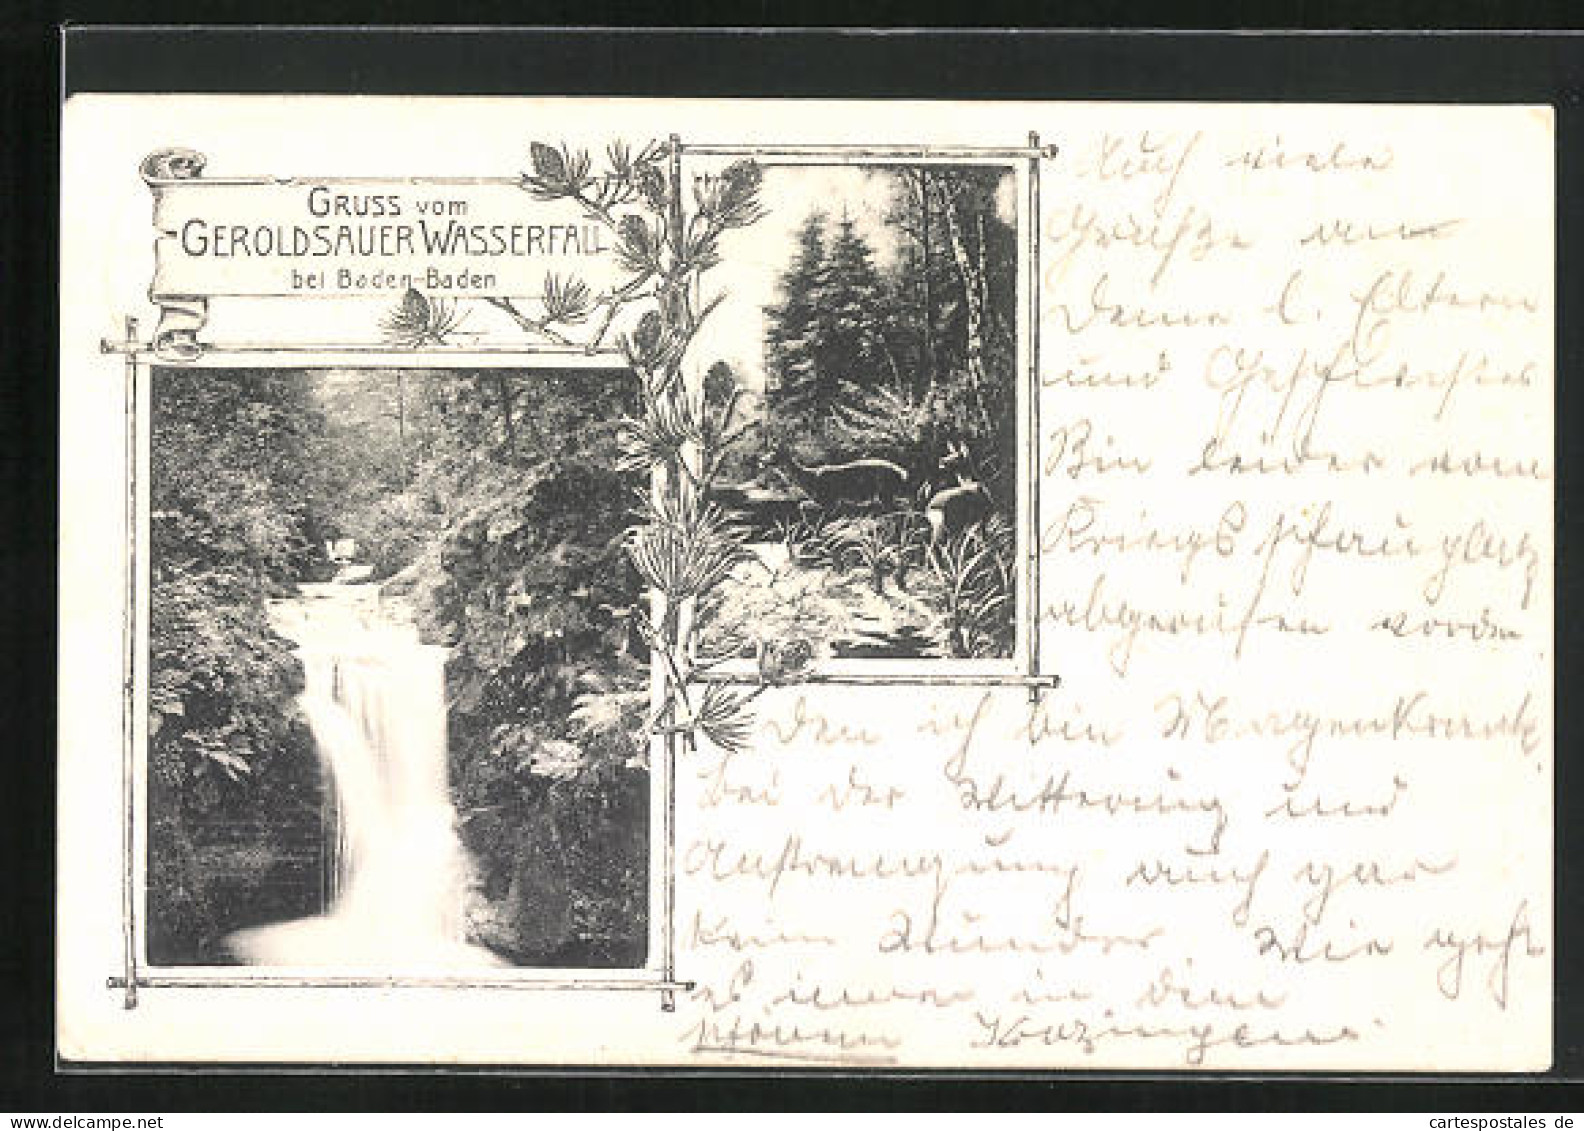 GRUSS vom
GEROLDSAUER WASSERFALL
bei Baden-Baden
Auch viele
Grüße an
Deine l. Eltern
und Geschwister
Bin leider vom
Kriegsschauplatz
abgerufen worden
Den ich bin Magenkrank
bei der Witterung und
Anstrengung auch gar
kein Wunder Wie geht
es immer in dem
schönen
cartespostales de